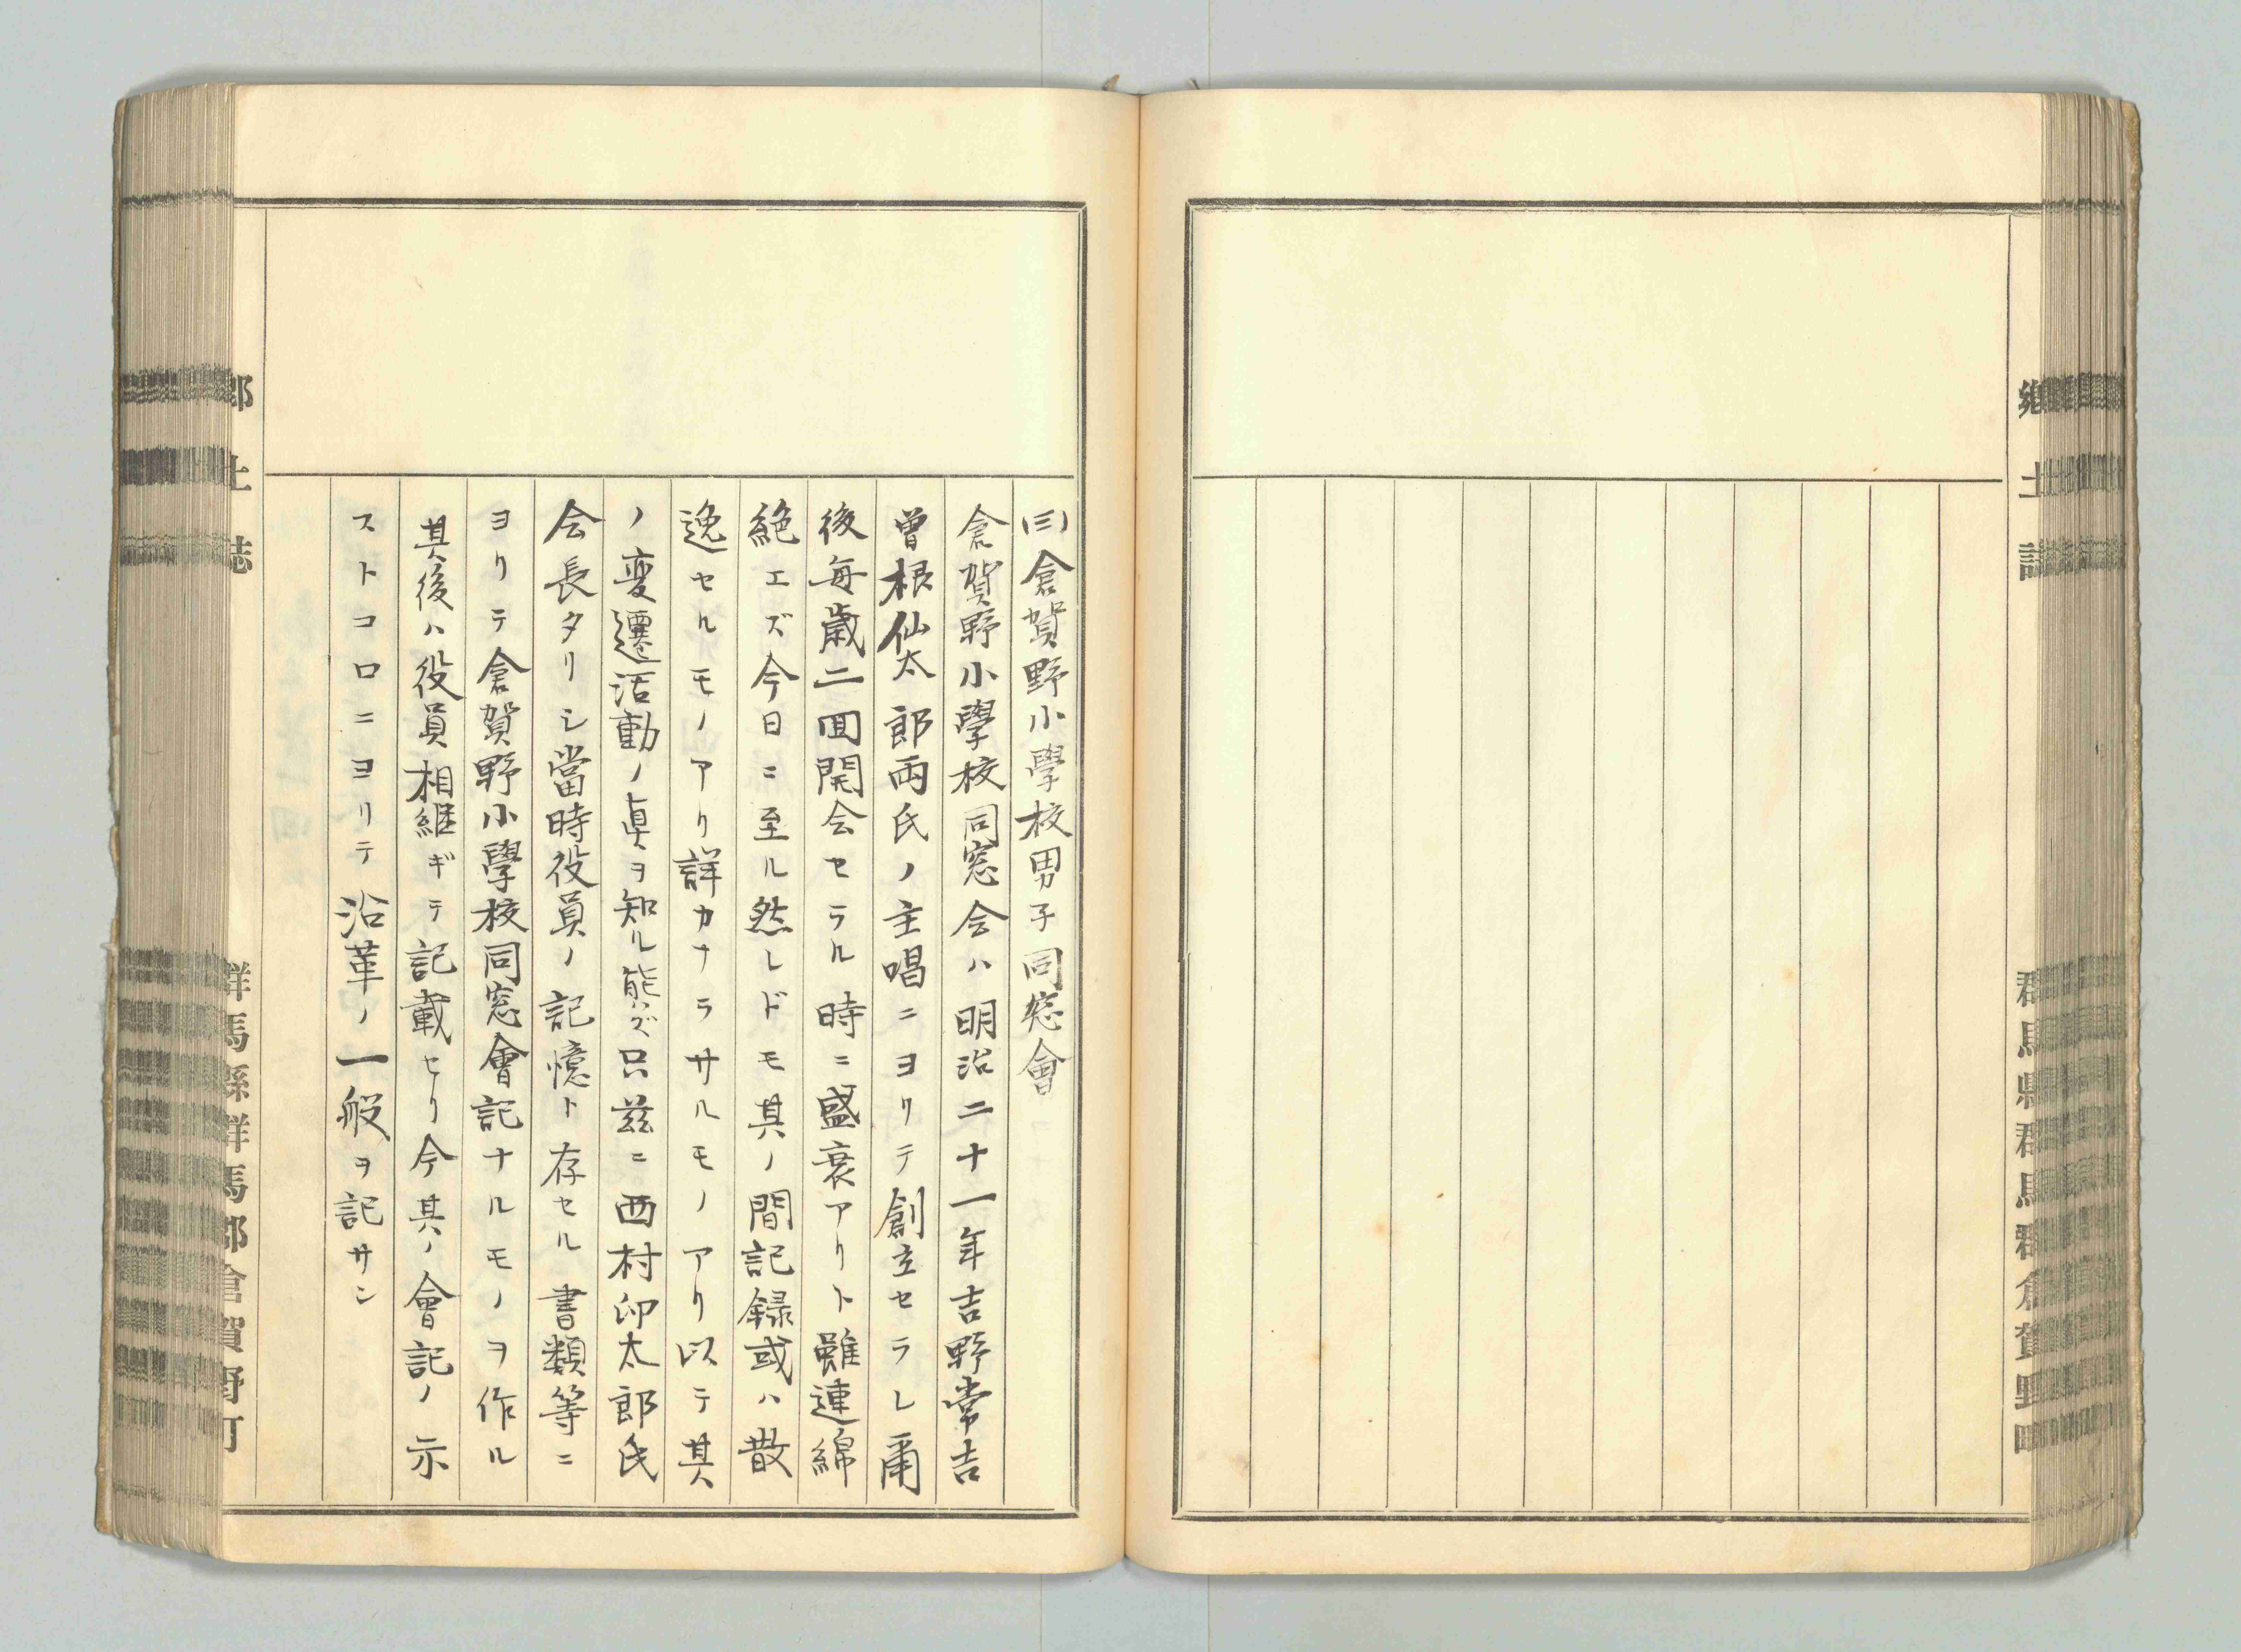 鄕土誌
群馬縣群馬郡倉賀野町
(三)倉賀野小學校男子同窓會
倉賀野小學校同窓会ハ明治二十一年吉野常吉
曾根仙太郎両氏ノ主唱ニヨリテ創立セラレ甭
後毎歳二囬開会セラル時ニ盛衰アリト雖連綿
絶エズ今日ニ至ル然レドモ其ノ間記録或ハ散
逸セルモノアリ詳カナラサルモノアリ以テ其
ノ変遷活動ノ眞ヲ知ル能ハズ只茲ニ西村卯太郎氏
会長タリシ當時役員ノ記憶ト存セル書類等ニ
ヨリテ倉賀野小學校同窓會記ナルモノヲ作ル
其後ハ役員相継ギテ記載セリ今其ノ會記ノ示
ストコロニヨリテ沿革ノ一般ヲ記サン
鄕土誌
群馬縣群馬郡倉賀野町